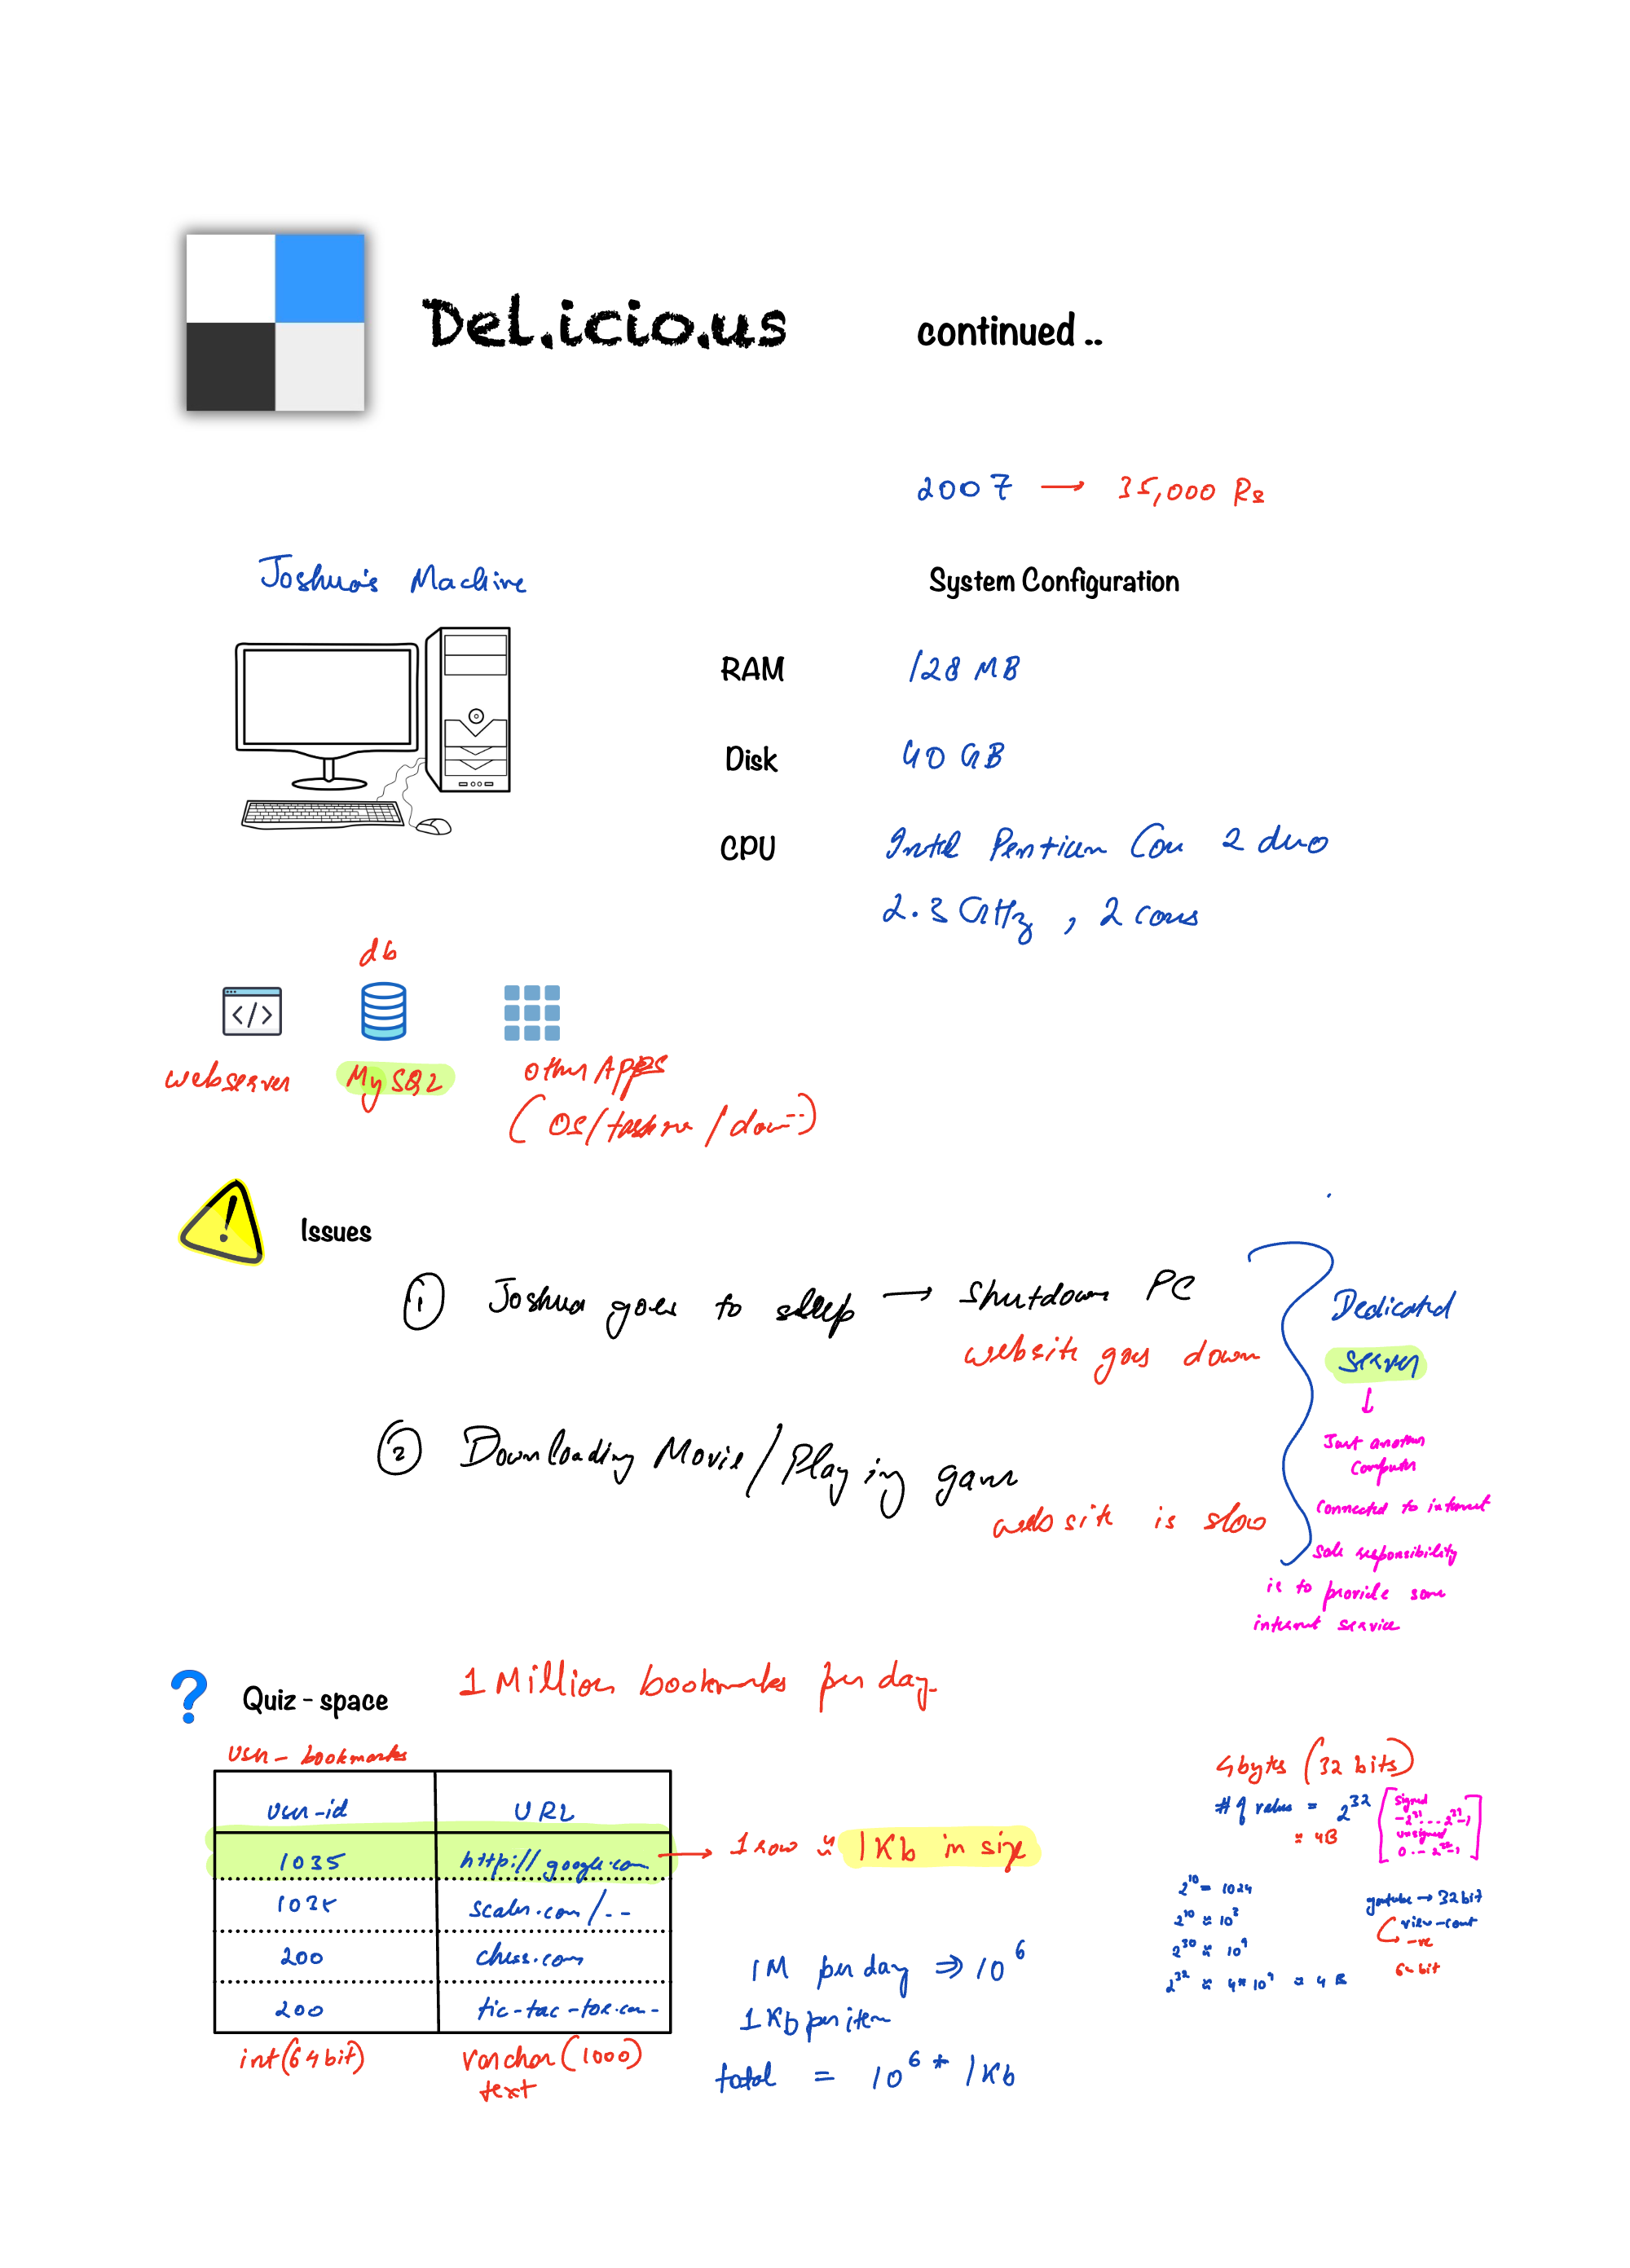 Del.icio.us continued ..
2007 → 35,000 Rs
Joshua's Machine
System Configuration
RAM 128 MB
Disk 40 GB
CPU Intel Pentium Core 2 duo
2.3 GHz , 2 cores
db
webserver MySQL other Apps
(OS/ /
Issues
① Joshua goes to sleep → Shutdown PC
website goes down
② Downloading Movie/Playing game
website is slow
Dedicated
Server
↓
Just another
computer
connected to internet
sole responsibility
is to provide some
internet service
? Quiz - space 1 Million bookmarks per day
user - bookmarks
user-id URL
1035 http://google.com → 1 row ≈ 1 Kb in size
1035 scaler.com/--
200 chess.com
200 tic-tac-toe.com-
int(64 bit) varchar(1000)
text
1M per day ⇒ 10^6
1 Kb per item
total = 10^6 * 1 Kb
4 bytes (32 bits)
# of values = 2^32
≈ 4B
signed
-2^31 ... 2^31-1
unsigned
0 .- 2^32-1
2^10 = 1024
2^10 ≈ 10^3
2^30 ≈ 10^9
2^32 ≈ 4*10^9 ≈ 4 B
youtube → 32 bit
view-count
→ -ve
64 bit